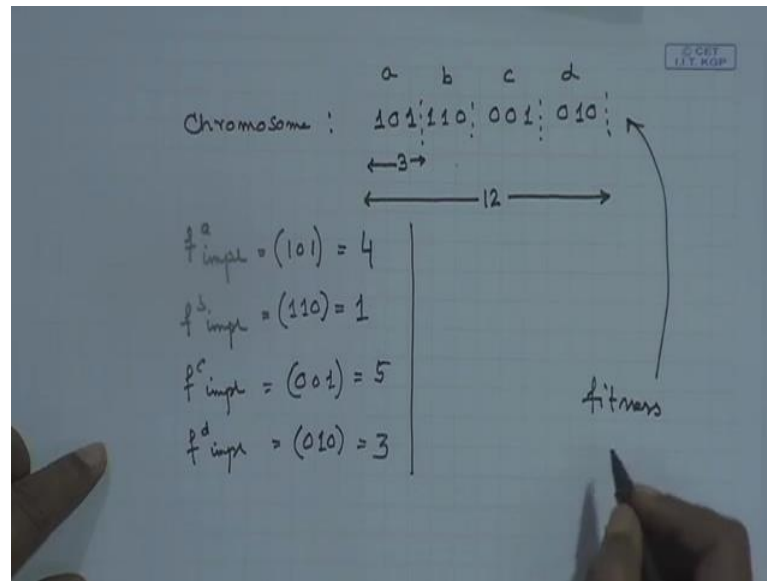 © CET
I.I.T. KGP
a b c d
Chromosome : 101 110 001 010
3
12
f^a impl = (101) = 4
f^b impl = (110) = 1
f^c impl = (001) = 5
f^d impl = (010) = 3
fitness